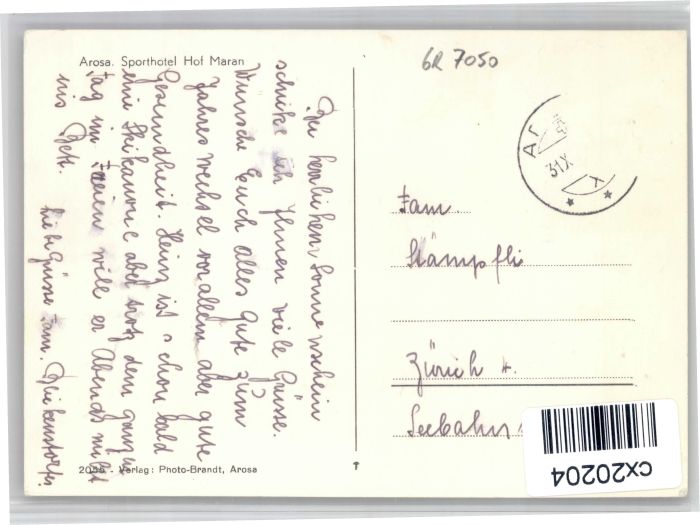 Arosa. Sporthotel Hof Maran
GR 7050
Bei herrlichem Sonnenschein
schicke ich Ihnen viele Grüsse.
Wünsche Euch alles gute zum
Jahreswechsel vor allem aber gute
Gesundheit. Heinz ist schon bald
eine Skikanone aber trotz dem ganzen
tag im freien will er Abends nicht
ins Bett.
Liebe Grüsse Fam.
Fam.
Stämpfli
Zürich 4.
Seebahn
31 X
2045 - Verlag: Photo-Brandt, Arosa
cx20204